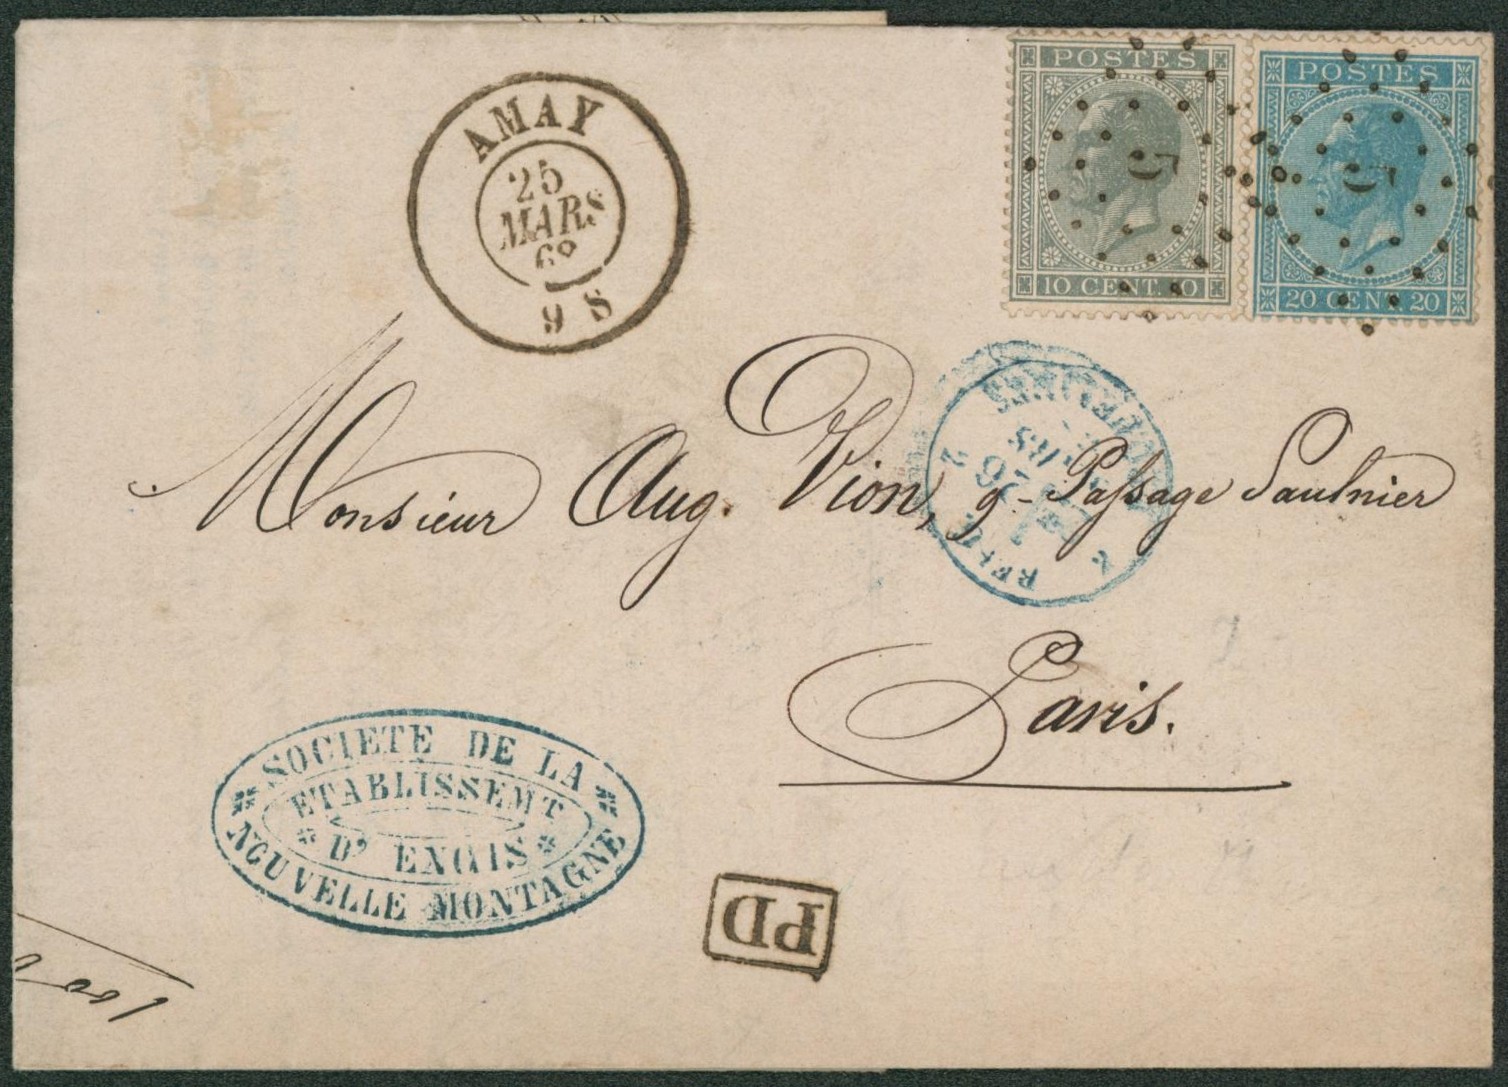 POSTES
10 CENT. 10
5
POSTES
20 CENT. 20
5
AMAY
25
MARS
68
9 S
Monsieur Aug. Vion, 9 - Passage Saulnier
Paris.
BELG.
26
2
SOCIETE DE LA
ETABLISSEMT
D' ENGIS
NOUVELLE MONTAGNE
PD